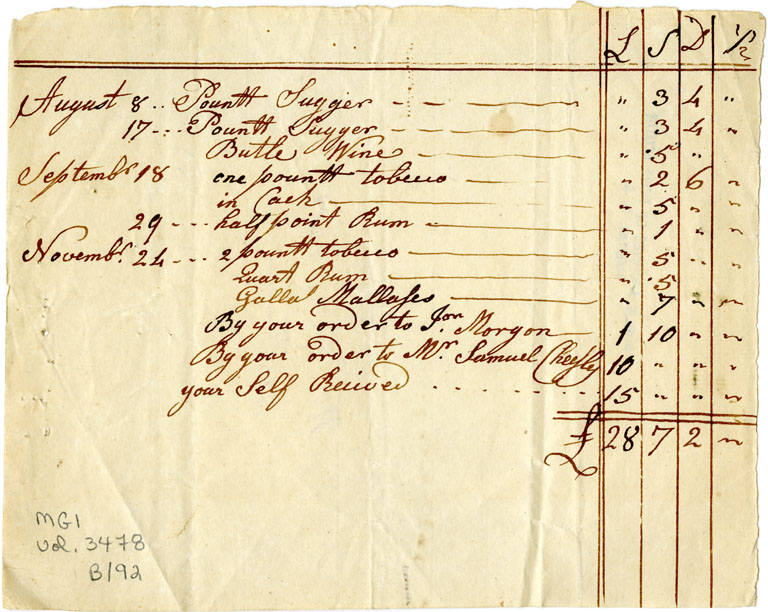 L S D 1/2
August 8 .. Pountt Sugger - - - " 3 4 "
17 --- Pountt Sugger - " 3 4 "
Butle Wine - " 5 "
Septembr 18 one pountt tobeco - " 2 6 "
in Cach - " 5 " "
29 --- half point Rum - " 1 " "
Novembr. 24 --- 2 pountt tobeco - " 5 " "
Quart Rum - " 5
Galla Mallases - " 7 " "
By your order to Jon Morgon - 1 10 " "
By your order to Mr. Samuel Cheesly 10 " " "
your Self Recived . . . . . . . 15 " " "
£ 28 7 2 "
MG1
vol. 3478
B/92